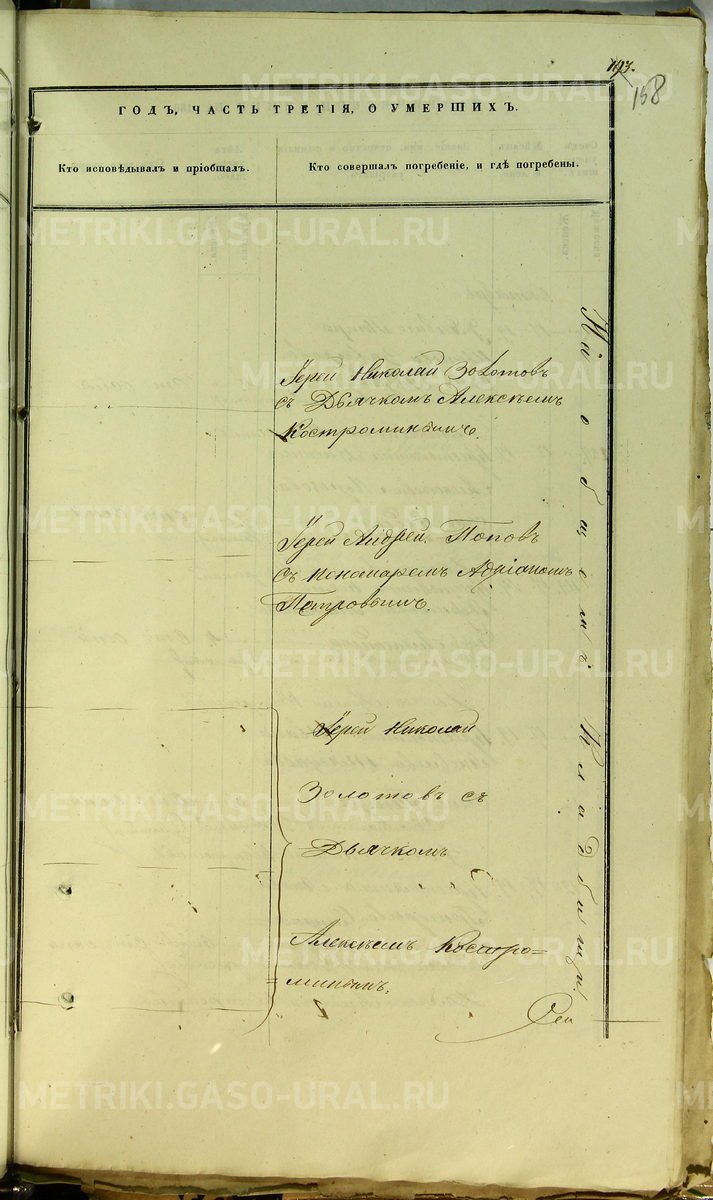 193.
158
ГОДЪ, ЧАСТЬ ТРЕТІЯ, О УМЕРШИХЪ.
Кто исповѣдывалъ и пріобщалъ.
Кто совершалъ погребеніе, и гдѣ погребены.
Іерей Николай Золотовъ
съ Дьячкомъ Алексѣемъ
Костроминымъ.
Іерей Андрей Поповъ
съ пономаремъ Адріаномъ
Петровымъ.
Іерей Николай
Золотовъ съ
Дьячкомъ
Алексѣемъ Костро=
минымъ.
На общемъ кладбищѣ.
METRIKI.GASO-URAL.RU